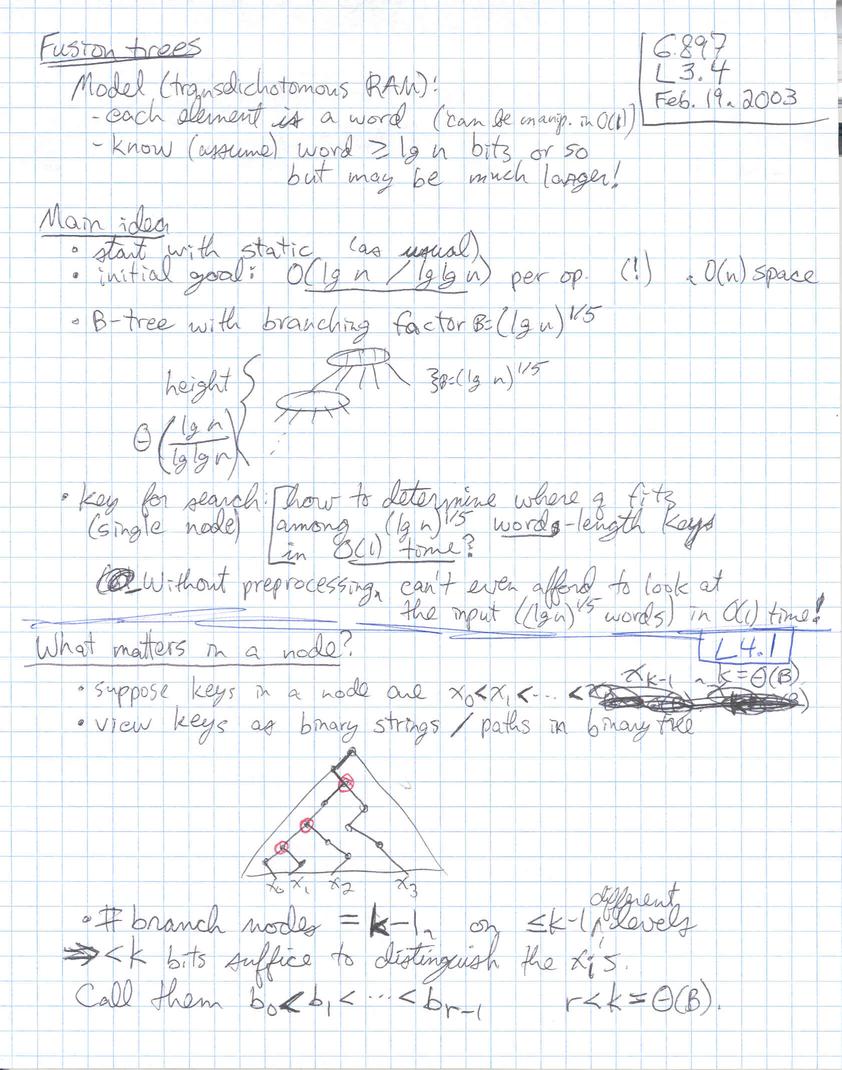 Fusion trees
6.897
L 3.4
Feb. 19, 2003
Model (transdichotomous RAM):
- each element is a word (can be manip. in O(1))
- know (assume) word ≥ lg n bits or so
but may be much larger!
Main idea
• start with static (as usual)
• initial goal: O(lg n / lg lg n) per op. (!) , O(n) space
• B-tree with branching factor B=(lg n)^1/5
height
Θ(lg n / lg lg n)
}B=(lg n)^1/5
• key for search: [how to determine where q fits
(single node) among (lg n)^1/5 word-length keys
in O(1) time?
Without preprocessing, can't even afford to look at
the input ((lg n)^1/5 words) in O(1) time!
L 4.1
What matters in a node?
• suppose keys in a node are x₀<x₁<⋯< x_k-1 , k=Θ(B)
• view keys as binary strings / paths in binary tree
x₀ x₁ x₂ x₃
• # branch nodes = k-1, on ≤k-1 different levels
⇒ <k bits suffice to distinguish the xᵢ's.
Call them b₀<b₁<⋯<b_r-1 r<k=Θ(B).